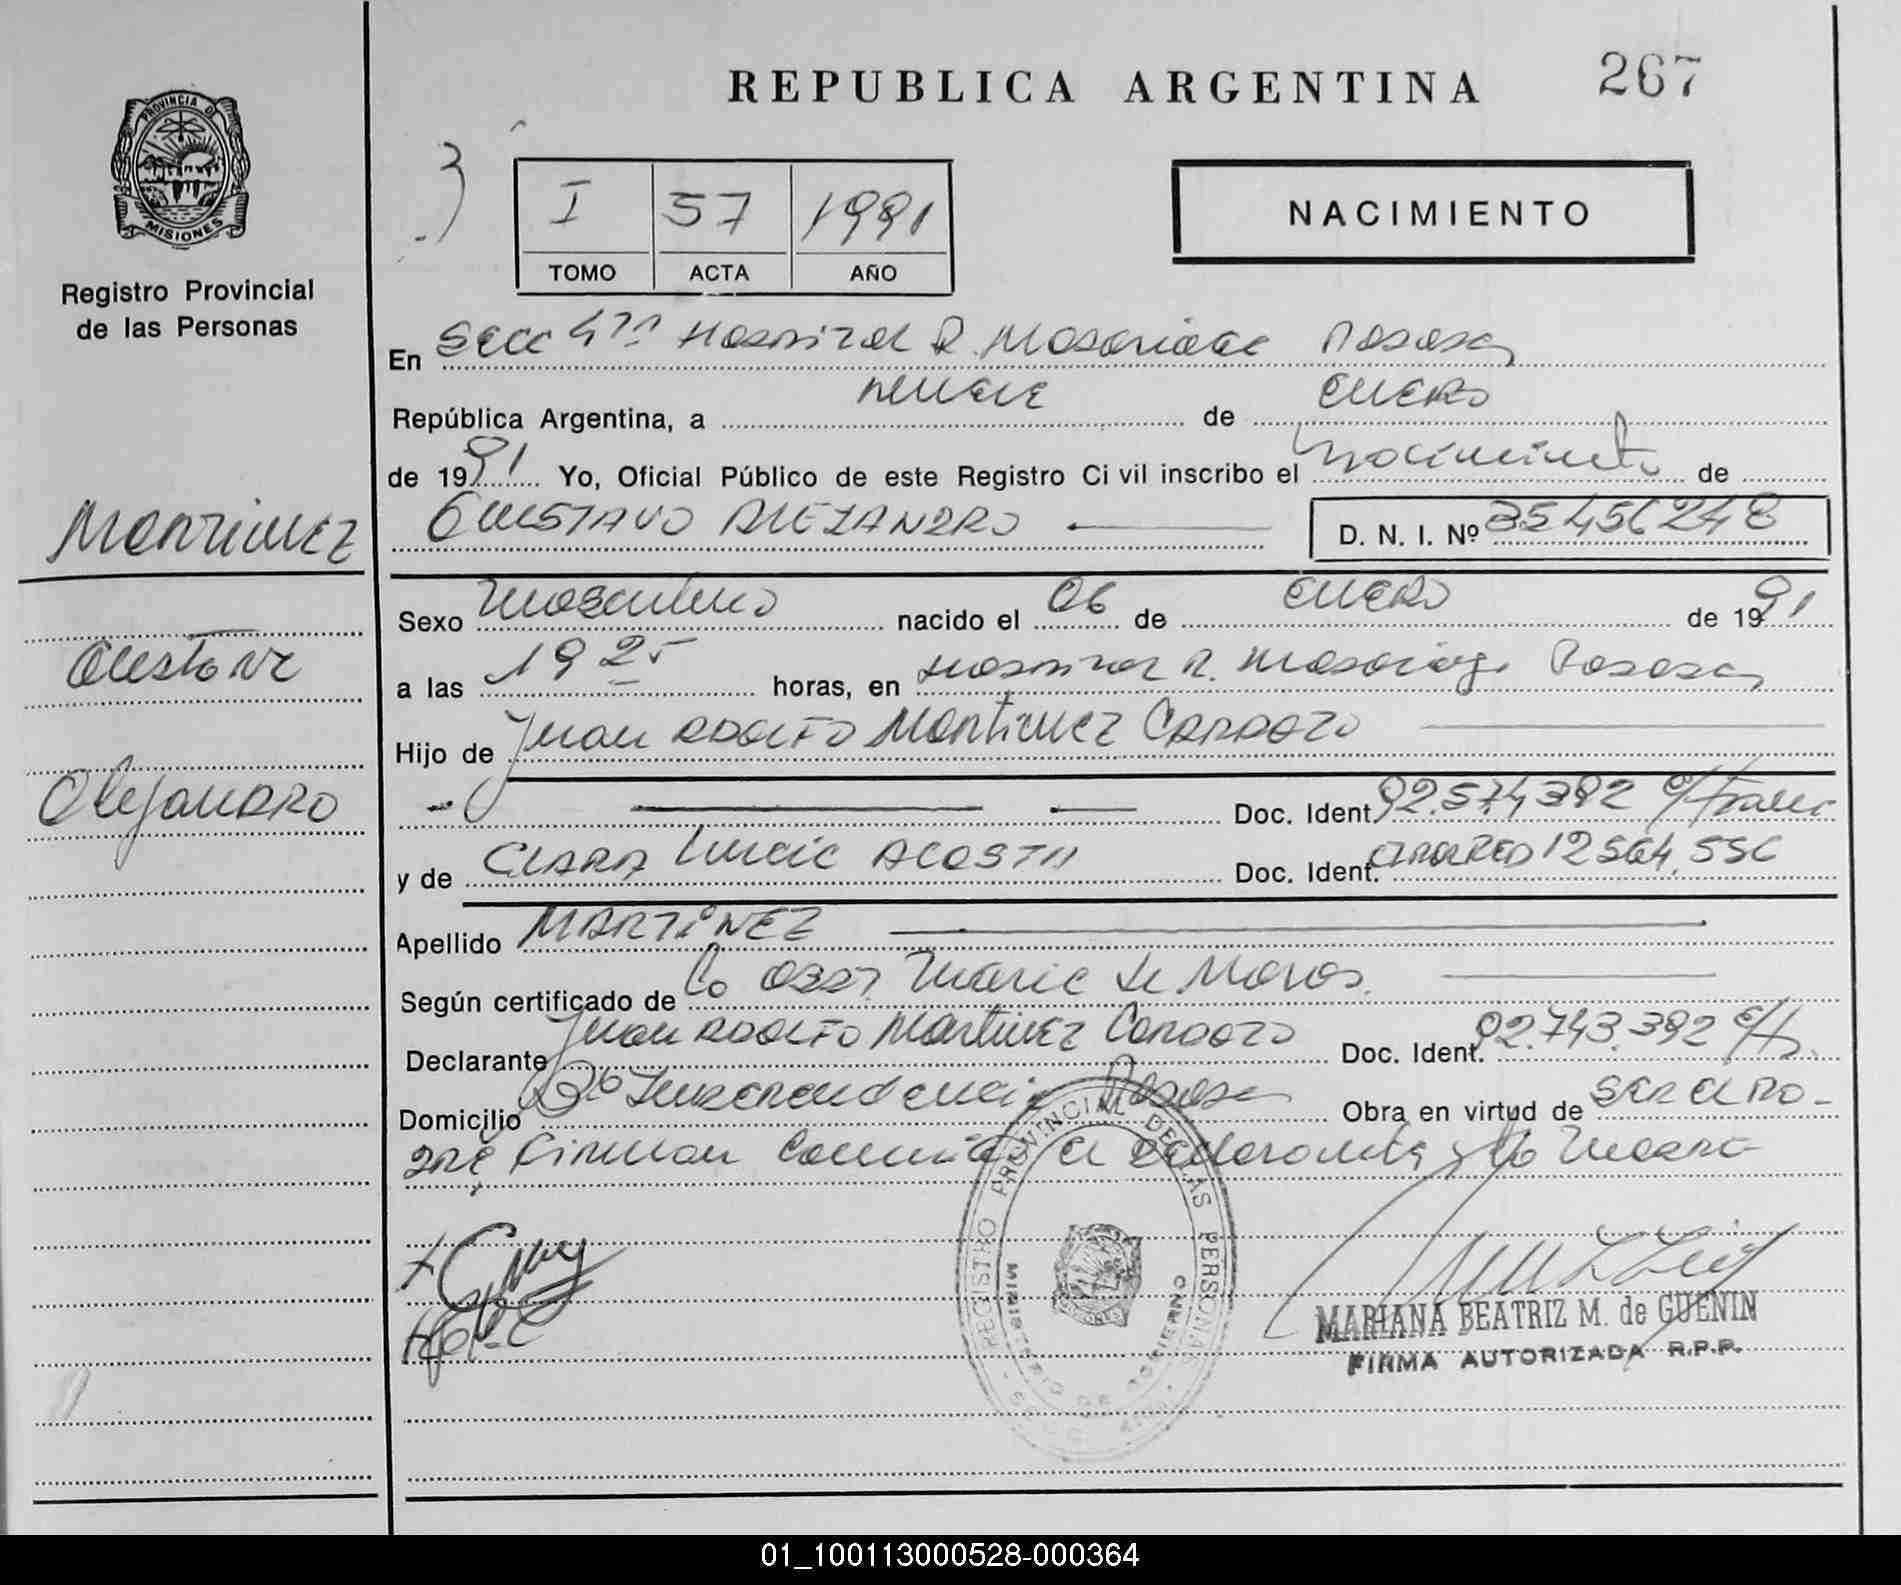 REPUBLICA ARGENTINA
267
PROVINCIA DE
MISIONES
Registro Provincial
de las Personas
I 57 1991
TOMO ACTA AÑO
NACIMIENTO
En Secc 4ta Hospital R. Madariaga Posadas
República Argentina, a nueve de enero
de 1991 Yo, Oficial Público de este Registro Civil inscribo el nacimiento de
GUSTAVO ALEJANDRO D. N. I. Nº 35456248
Martinez
Gustavo
Alejandro
Sexo masculino nacido el 06 de enero de 1991
a las 19 25 horas, en Hospital R. Madariaga Posadas
Hijo de Juan Adolfo Martinez Cardozo
Doc. Ident. 92.574392
y de Clara Lucia Acosta Doc. Ident. 12564.556
Apellido MARTINEZ
Según certificado de
Declarante Juan Adolfo Martinez Cardozo Doc. Ident. 92.743.392
Domicilio Bº Independencia Posadas Obra en virtud de ser el pro-
genitor firman el declarante y la madre
REGISTRO PROVINCIAL DE LAS PERSONAS
MINISTERIO DE GOBIERNO
MARIANA BEATRIZ M. de GUENIN
FIRMA AUTORIZADA R.P.P.
01_100113000528-000364